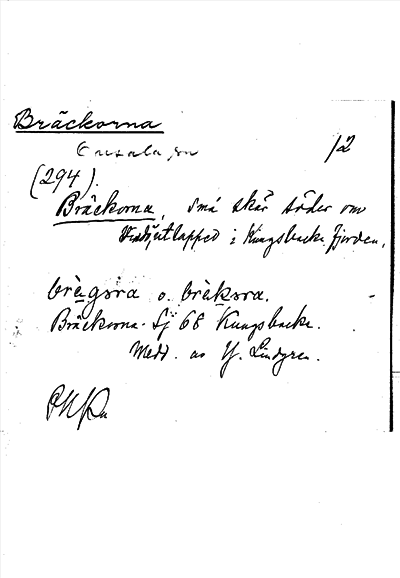 Bräckorna
12
(294).
Bräckorna, små skär söder om
i Kungsbacka fjorden.
brègsra o. brèksra.
Bräckorna. Sj 68 Kungsbacka.
Medd. av Hj. Lindgren.